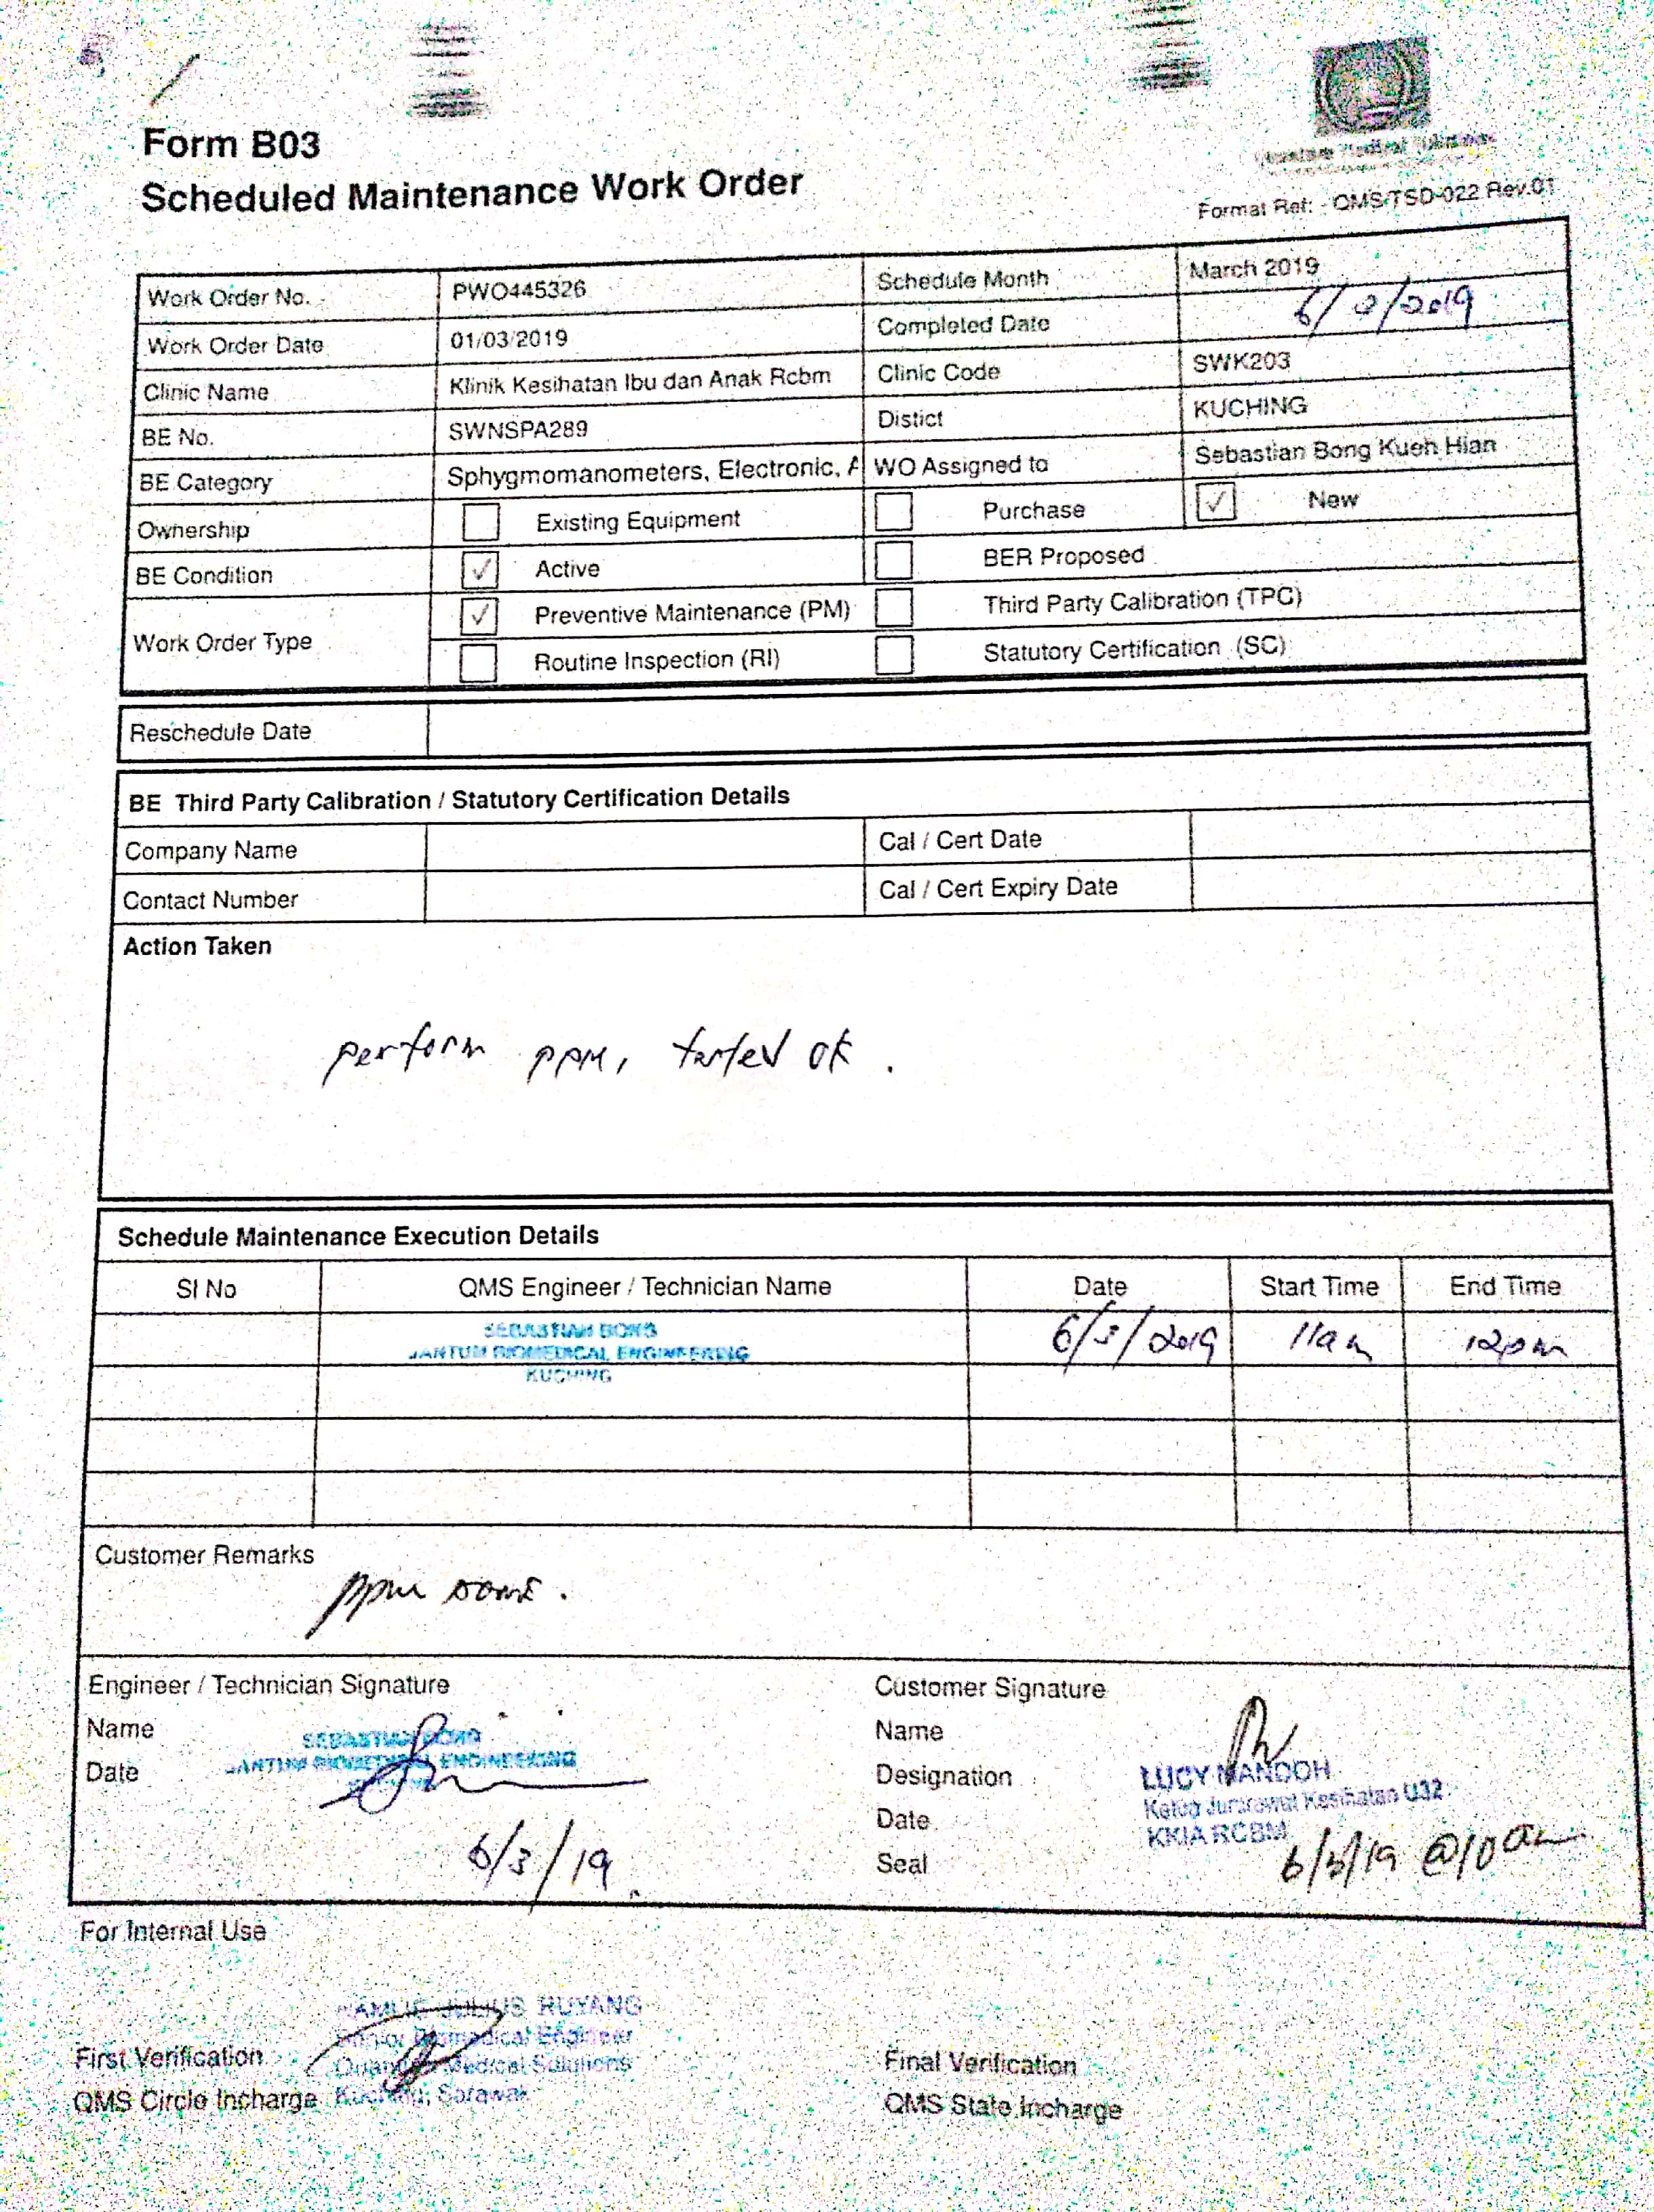 Form B03
Scheduled Maintenance Work Order
Format Ref: - QMS/TSD-022 Rev.01
Work Order No. PWO445326 Schedule Month March 2019
Work Order Date 01/03/2019 Completed Date 6/3/2019
Clinic Name Klinik Kesihatan Ibu dan Anak Rcbm Clinic Code SWK203
BE No. SWNSPA289 Distict KUCHING
BE Category Sphygmomanometers, Electronic, A WO Assigned to Sebastian Bong Kueh Hian
Ownership Existing Equipment Purchase ✓ New
BE Condition ✓ Active BER Proposed
Work Order Type ✓ Preventive Maintenance (PM) Third Party Calibration (TPC)
Routine Inspection (RI) Statutory Certification (SC)
Reschedule Date
BE Third Party Calibration / Statutory Certification Details
Company Name Cal / Cert Date
Contact Number Cal / Cert Expiry Date
Action Taken
perform ppm, tested ok.
Schedule Maintenance Execution Details
SI No QMS Engineer / Technician Name Date Start Time End Time
SEBASTIAN BONG 6/3/2019 11am 12pm
JANTUM BIOMEDICAL ENGINEERING
KUCHING
Customer Remarks
ppm DONE.
Engineer / Technician Signature Customer Signature
Name SEBASTIAN BONG Name
JANTUM BIOMEDICAL ENGINEERING
Date Designation LUCY MANDOH
Ketua Jururawat Kesihatan U32
Date KKIA RCBM
6/3/19 Seal 6/3/19 @10am
For Internal Use
JULIUS RUYANG
Senior Biomedical Engineer
First Verification Quantum Medical Solutions Final Verification
QMS Circle Incharge Kuching, Sarawak QMS State Incharge